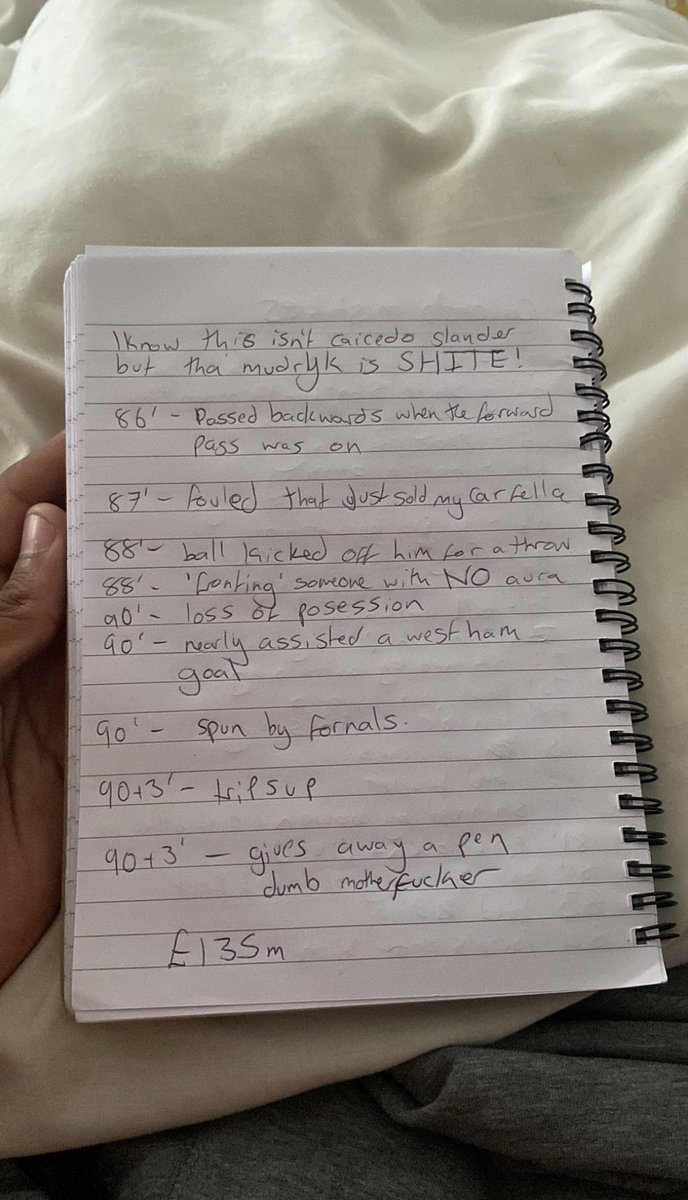 I know this isn't caicedo slander
but tha mudryk is SHITE!
86' - Passed backwards when the forward
pass was on
87' - fouled that Just sold my car fella
88' - ball kicked off him for a throw
88' - 'fronting' someone with NO aura
90' - loss of posession
90' - nearly assisted a west ham
goal
90' - spun by fornals.
90+3' - trips up
90+3' - gives away a pen
dumb motherfucker
£135m